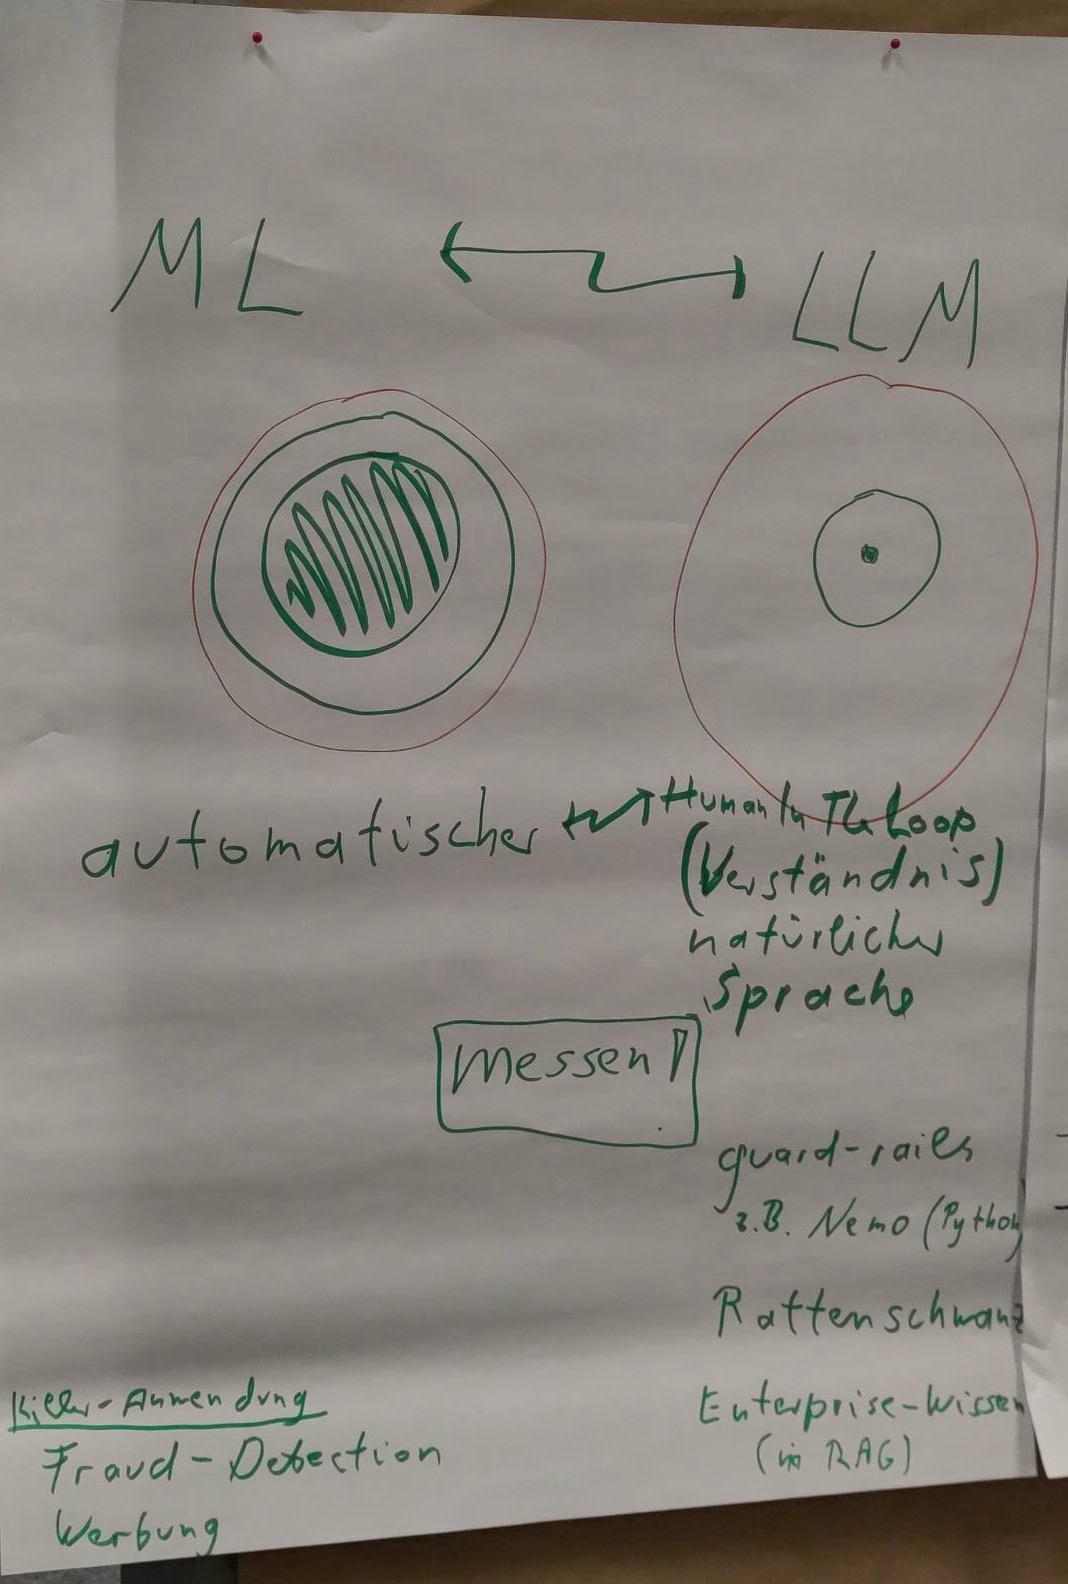 ML
LLM
automatischer
Human In The Loop
(Verständnis)
natürlicher
Sprache
Messen!
guard-rails
z.B. Nemo (Python)
Rattenschwanz
Enterprise-Wissen
(in RAG)
Killer-Anwendung
Fraud-Detection
Werbung